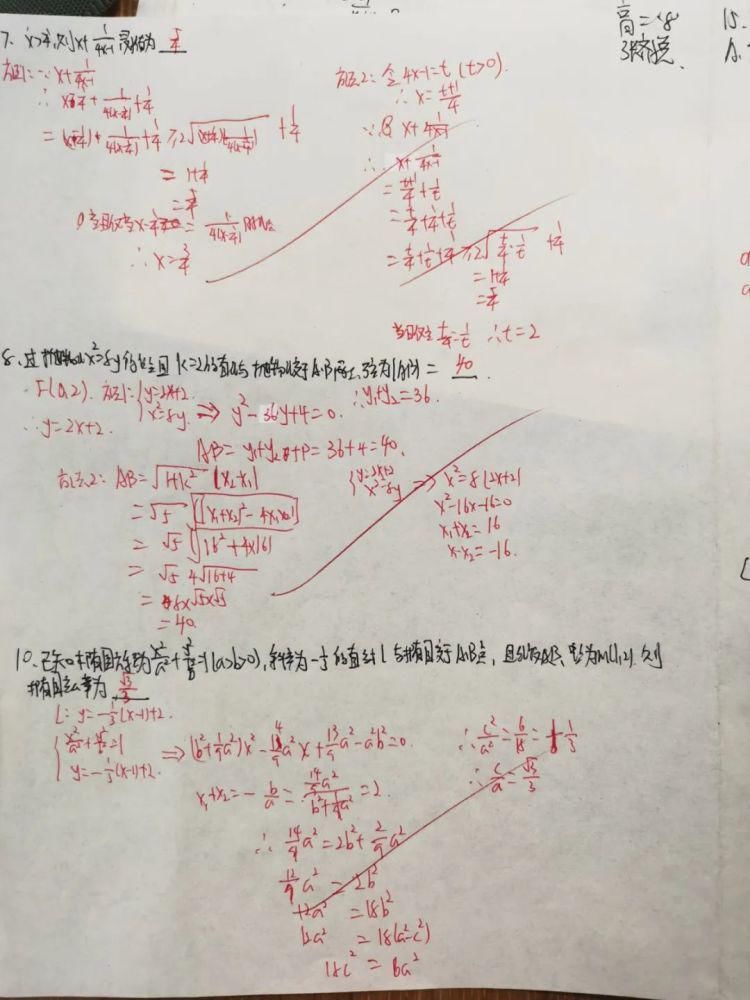 高=-8
15.
7. x>¼,则x+1/(4x-1)最小值为 5/4
方法1: ∵x+1/(4x-1)
∴ x-¼+1/(4(x-¼))+¼
=(x-¼)+1/(4(x-¼))+¼≥2√((x-¼)(1/(4(x-¼))))+¼
=1+¼
=5/4
=1/(4(x-¼))
∴x=¾
方法2: 令4x-1=t (t>0).
∴x=(t+1)/4
x+1/(4x-1)
∴x+1/(4x-1)
=(t+1)/4+1/t
=t/4+¼+1/t
=t/4+1/t+¼≥2√(t/4·1/t)+¼
=1+¼
=5/4
当且仅当t/4=1/t ∴t=2
8.过抛物线x²=8y的焦点且k=2的直线与抛物线交于A·B两点,弦为|AB|= 40
F(0,2). 方法1: {y=2x+2
x²=8y. ⇒ y²-36y+4=0. ∴y₁+y₂=36.
∴y=2x+2.
AB=y₁+y₂+p=36+4=40.
方法2: AB=√(1+k²)|x₂-x₁|
=√5 √([x₁+x₂)²-4x₁x₂]
=√5 √(16²+4×16)
=√5 4√(16+4)
√5×√5
=40.
{y=2x+2
x²=8y → x²=8(2x+2)
x²-16x-16=0
x₁+x₂=16
x·x₂=-16.
10.已知椭圆方程为x²/a²+y²/b²=1(a>b>0),斜率为-⅓的直线l与椭圆交于A·B点,且线段AB中点为M(1,2).则
椭圆离心率为 √3/3
L: y=-⅓(x-1)+2.
{x²/a²+y²/b²=1
y=-⅓(x-1)+2. ⇒(b²+1/9a²)x²-14/9a²x+
-a²b²=0.
x₁+x₂=-b/a=(14/9a²)/(b²+1/9a²)=2
∴14/9a²=2b²+2/9a²
12/9a²=2b²
12a²=18b²
12a²=18(a²-c²)
18c²=6a²
∴c²/a²=6/18=⅓
∴c/a=√3/3